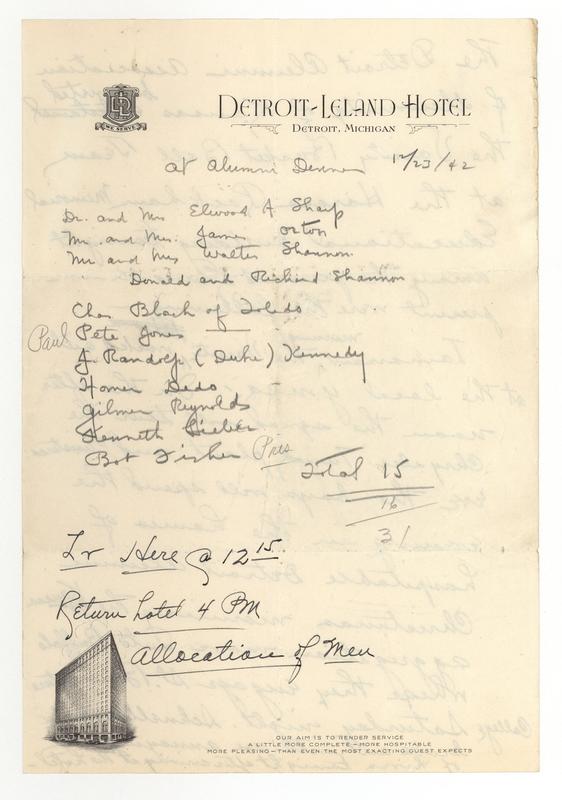 DETROIT-LELAND HOTEL
DETROIT, MICHIGAN
WE SERVE
at Alumni Dinner 12/23/42
Dr. and Mrs Elwood A Sharp
Mr. and Mrs. James Orton
Mr and Mrs Walter Shannon
Donald and Richard Shannon
Chas Black of Toledo
Paul Pete Jones
J. Randolph (Duke) Kennedy
Homer Dedo
Gilmer Reynolds
Kenneth Bieber
Bot Fisher Pres
Total 15
16
31
Lv Here @ 12 15
Return hotel 4 PM
Allocation of Men
OUR AIM IS TO RENDER SERVICE
A LITTLE MORE COMPLETE—MORE HOSPITABLE
MORE PLEASING—THAN EVEN THE MOST EXACTING GUEST EXPECTS